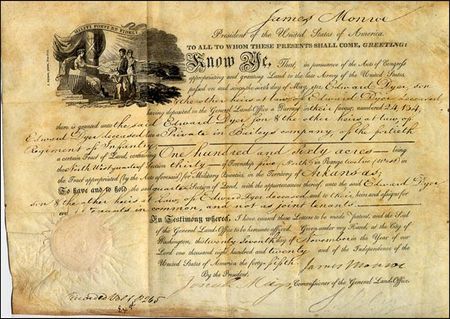 James Monroe
President of the United States of America
TO ALL TO WHOM THESE PRESENTS SHALL COME, GREETING:
Know Ye, That in pursuance of the Acts of Congress
appropriating and granting Land to the late Army of the United States,
passed on and since the sixth day of May, 1812, Edward Dyer, son
& the other heirs at law of Edward Dyer deceased
having deposited in the General Land-Office a Warrant in their favor, numbered 24,134
there is granted unto the said Edward Dyer, son & the other heirs at law of
Edward Dyer deceased late a Private in Bailey's company, of the fortieth
Regiment of Infantry
a certain Tract of Land, containing One hundred and sixty acres being
the North West quarter of Section thirty of Township five North in Range twelve (West)
in the Tract appropriated (by the Acts aforesaid) for Military Bounties, in the Territory of Arkansas;
To have and to hold the said quarter Section of Land, with the appurtenances thereof, unto the said Edward Dyer
son & the other heirs at Law, of Edward Dyer deceased and to their heirs and assigns for
ever as tenants in common and not as joint tenants
In Testimony whereof, I have caused these Letters to be made Patent, and the Seal
of the General Land Office to be hereunto affixed. Given under my Hand, at the City of
Washington, this twenty seventh day of November in the Year of our
Lord one thousand eight hundred and twenty and of the Independence of the
United States of America the forty fifth
By the President, James Monroe
Commissioner of the General Land-Office.
Recorded Vol